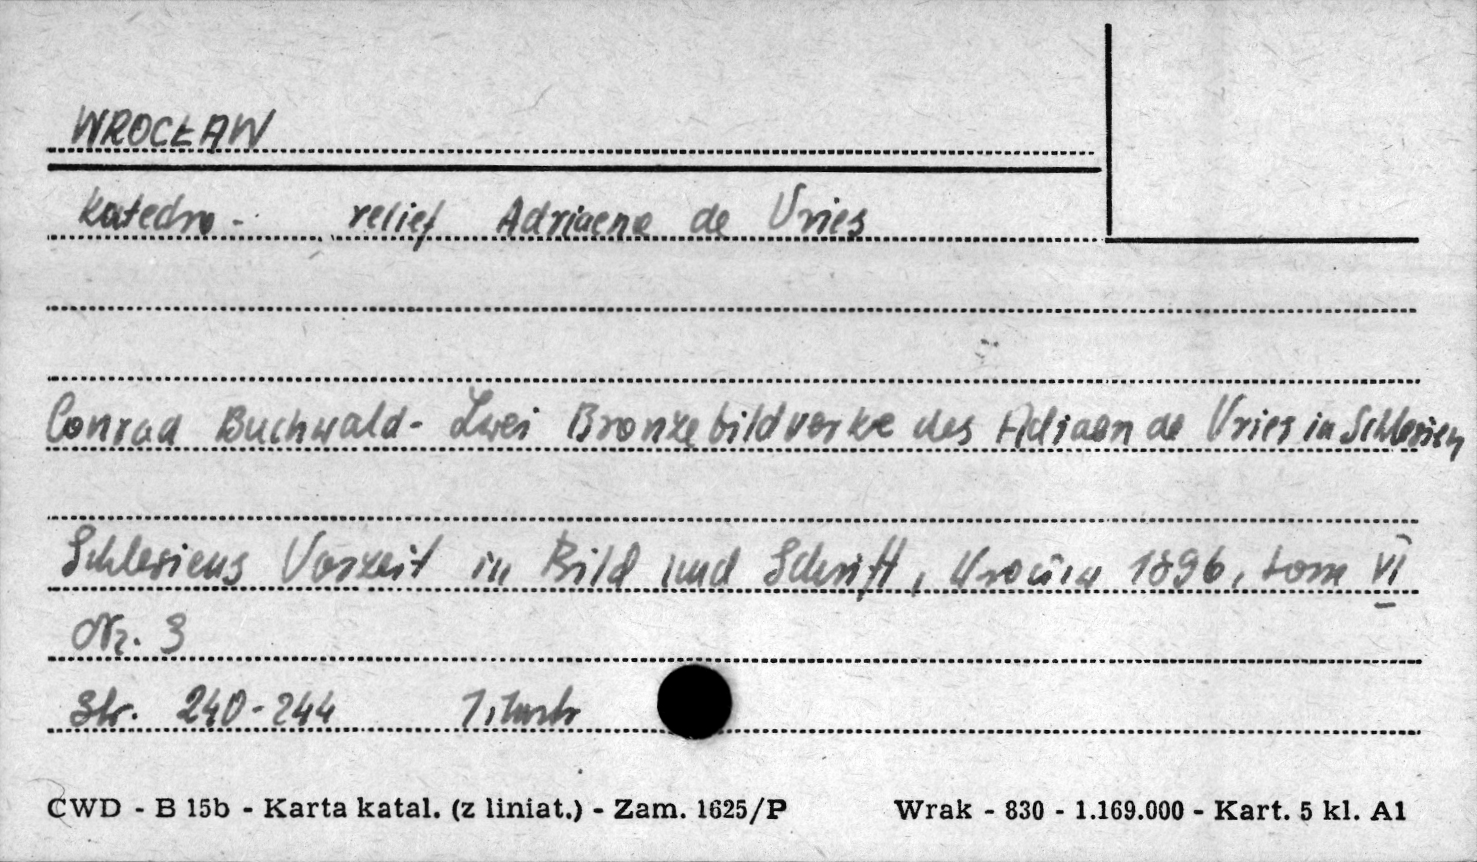 WROCŁAW
Katedra - relief Adriaena de Vries
Conrad Buchwald - Zwei Bronzebildwerke des Adriaen de Vries in Schlesien
Schlesiens Vorzeit in Bild und Schrift, 1896, tom VI
Nr. 3
Str. 240-244
CWD - B 15b - Karta katal. (z liniat.) - Zam. 1625/P Wrak - 830 - 1.169.000 - Kart. 5 kl. A1